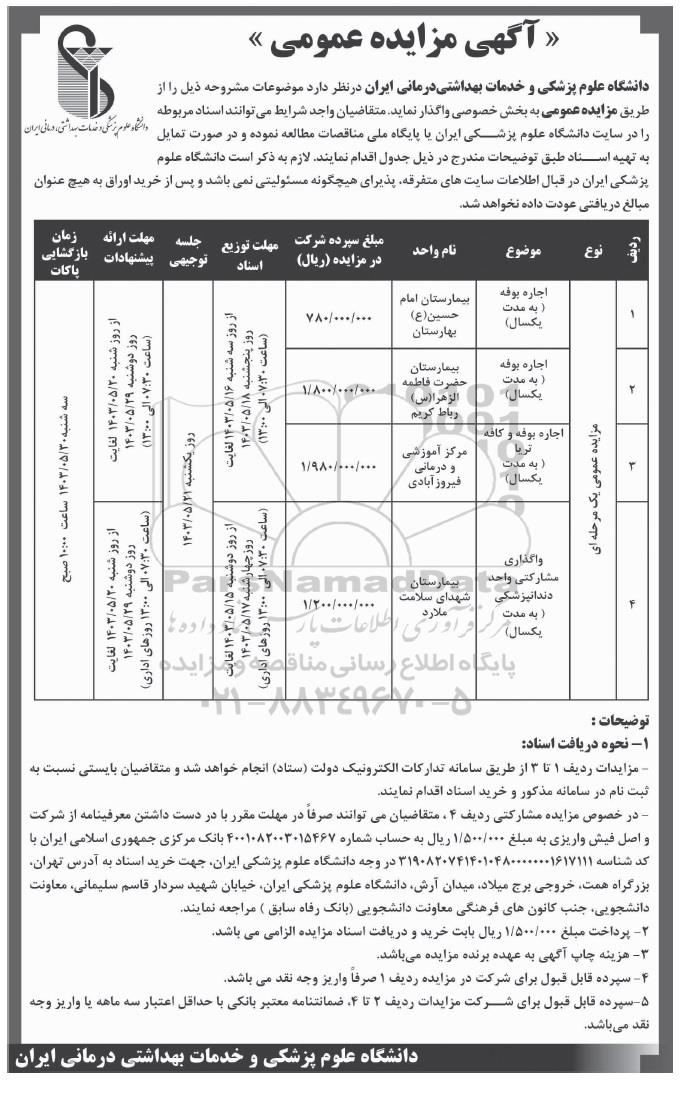 « آگهی مزایده عمومی »
دانشگاه علوم پزشکی و خدمات بهداشتی، درمانی ایران
دانشگاه علوم پزشکی و خدمات بهداشتی‌درمانی ایران درنظر دارد موضوعات مشروحه ذیل را از
طریق مزایده عمومی به بخش خصوصی واگذار نماید. متقاضیان واجد شرایط می‌توانند اسناد مربوطه
را در سایت دانشگاه علوم پزشکی ایران یا پایگاه ملی مناقصات مطالعه نموده و در صورت تمایل
به تهیه اسناد طبق توضیحات مندرج در ذیل جدول اقدام نمایند. لازم به ذکر است دانشگاه علوم
پزشکی ایران در قبال اطلاعات سایت های متفرقه، پذیرای هیچگونه مسئولیتی نمی باشد و پس از خرید اوراق به هیچ عنوان
مبالغ دریافتی عودت داده نخواهد شد.
ردیف
نوع
موضوع
نام واحد
مبلغ سپرده شرکت
در مزایده (ریال)
مهلت توزیع
اسناد
جلسه
توجیهی
مهلت ارائه
پیشنهادات
زمان
بازگشایی
پاکات
۱
مزایده عمومی یک مرحله ای
اجاره بوفه
( به مدت
یکسال)
بیمارستان امام
حسین(ع)
بهارستان
۷۸۰/۰۰۰/۰۰۰
از روز سه شنبه ۱۴۰۳/۰۵/۱۶ لغایت
روز پنجشنبه ۱۴۰۳/۰۵/۱۸
(ساعت ۰۷:۳۰ الی ۱۳:۰۰)
روز یکشنبه ۱۴۰۳/۰۵/۲۱
از روز شنبه ۱۴۰۳/۰۵/۲۰ لغایت
روز دوشنبه ۱۴۰۳/۰۵/۲۹
(ساعت ۰۷:۳۰ الی ۱۳:۰۰)
سه شنبه ۱۴۰۳/۰۵/۳۰ ساعت ۱۰:۰۰ صبح
۲
اجاره بوفه
( به مدت
یکسال)
بیمارستان
حضرت فاطمه
الزهرا(س)
رباط کریم
۱/۸۰۰/۰۰۰/۰۰۰
۳
اجاره بوفه و کافه
تریا
( به مدت
یکسال)
مرکز آموزشی
و درمانی
فیروزآبادی
۱/۹۸۰/۰۰۰/۰۰۰
۴
واگذاری
مشارکتی واحد
دندانپزشکی
( به مدت
یکسال)
بیمارستان
شهدای سلامت
ملارد
۱/۲۰۰/۰۰۰/۰۰۰
از روز دوشنبه ۱۴۰۳/۰۵/۱۵ لغایت
روزچهارشنبه ۱۴۰۳/۰۵/۱۷
(ساعت ۰۷:۳۰ الی ۱۳:۰۰ روزهای اداری)
از روز شنبه ۱۴۰۳/۰۵/۲۰ لغایت
روز دوشنبه ۱۴۰۳/۰۵/۲۹
(ساعت ۰۷:۳۰ الی ۱۳:۰۰ روزهای اداری)
ParsNamadData
مرکز فرآوری اطلاعات پارس نماد داده ها
پایگاه اطلاع رسانی مناقصه و مزایده
۰۲۱-۸۸۳۴۹۶۷۰-۵
توضیحات :
۱- نحوه دریافت اسناد:
- مزایدات ردیف ۱ تا ۳ از طریق سامانه تدارکات الکترونیک دولت (ستاد) انجام خواهد شد و متقاضیان بایستی نسبت به
ثبت نام در سامانه مذکور و خرید اسناد اقدام نمایند.
- در خصوص مزایده مشارکتی ردیف ۴ ، متقاضیان می توانند صرفاً در مهلت مقرر با در دست داشتن معرفینامه از شرکت
و اصل فیش واریزی به مبلغ ۱/۵۰۰/۰۰۰ ریال به حساب شماره ۴۰۰۱۰۸۲۰۰۳۰۱۵۴۶۷ بانک مرکزی جمهوری اسلامی ایران با
کد شناسه ۳۱۹۰۸۲۰۷۴۱۴۰۱۰۴۸۰۰۰۰۰۰۰۱۶۱۷۱۱۱ در وجه دانشگاه علوم پزشکی ایران، جهت خرید اسناد به آدرس تهران،
بزرگراه همت، خروجی برج میلاد، میدان آرش، دانشگاه علوم پزشکی ایران، خیابان شهید سردار قاسم سلیمانی، معاونت
دانشجویی، جنب کانون های فرهنگی معاونت دانشجویی (بانک رفاه سابق ) مراجعه نمایند.
۲- پرداخت مبلغ ۱/۵۰۰/۰۰۰ ریال بابت خرید و دریافت اسناد مزایده الزامی می باشد.
۳- هزینه چاپ آگهی به عهده برنده مزایده می‌باشد.
۴- سپرده قابل قبول برای شرکت در مزایده ردیف ۱ صرفاً واریز وجه نقد می باشد.
۵-سپرده قابل قبول برای شرکت مزایدات ردیف ۲ تا ۴، ضمانتنامه معتبر بانکی با حداقل اعتبار سه ماهه یا واریز وجه
نقد می‌باشد.
دانشگاه علوم پزشکی و خدمات بهداشتی درمانی ایران